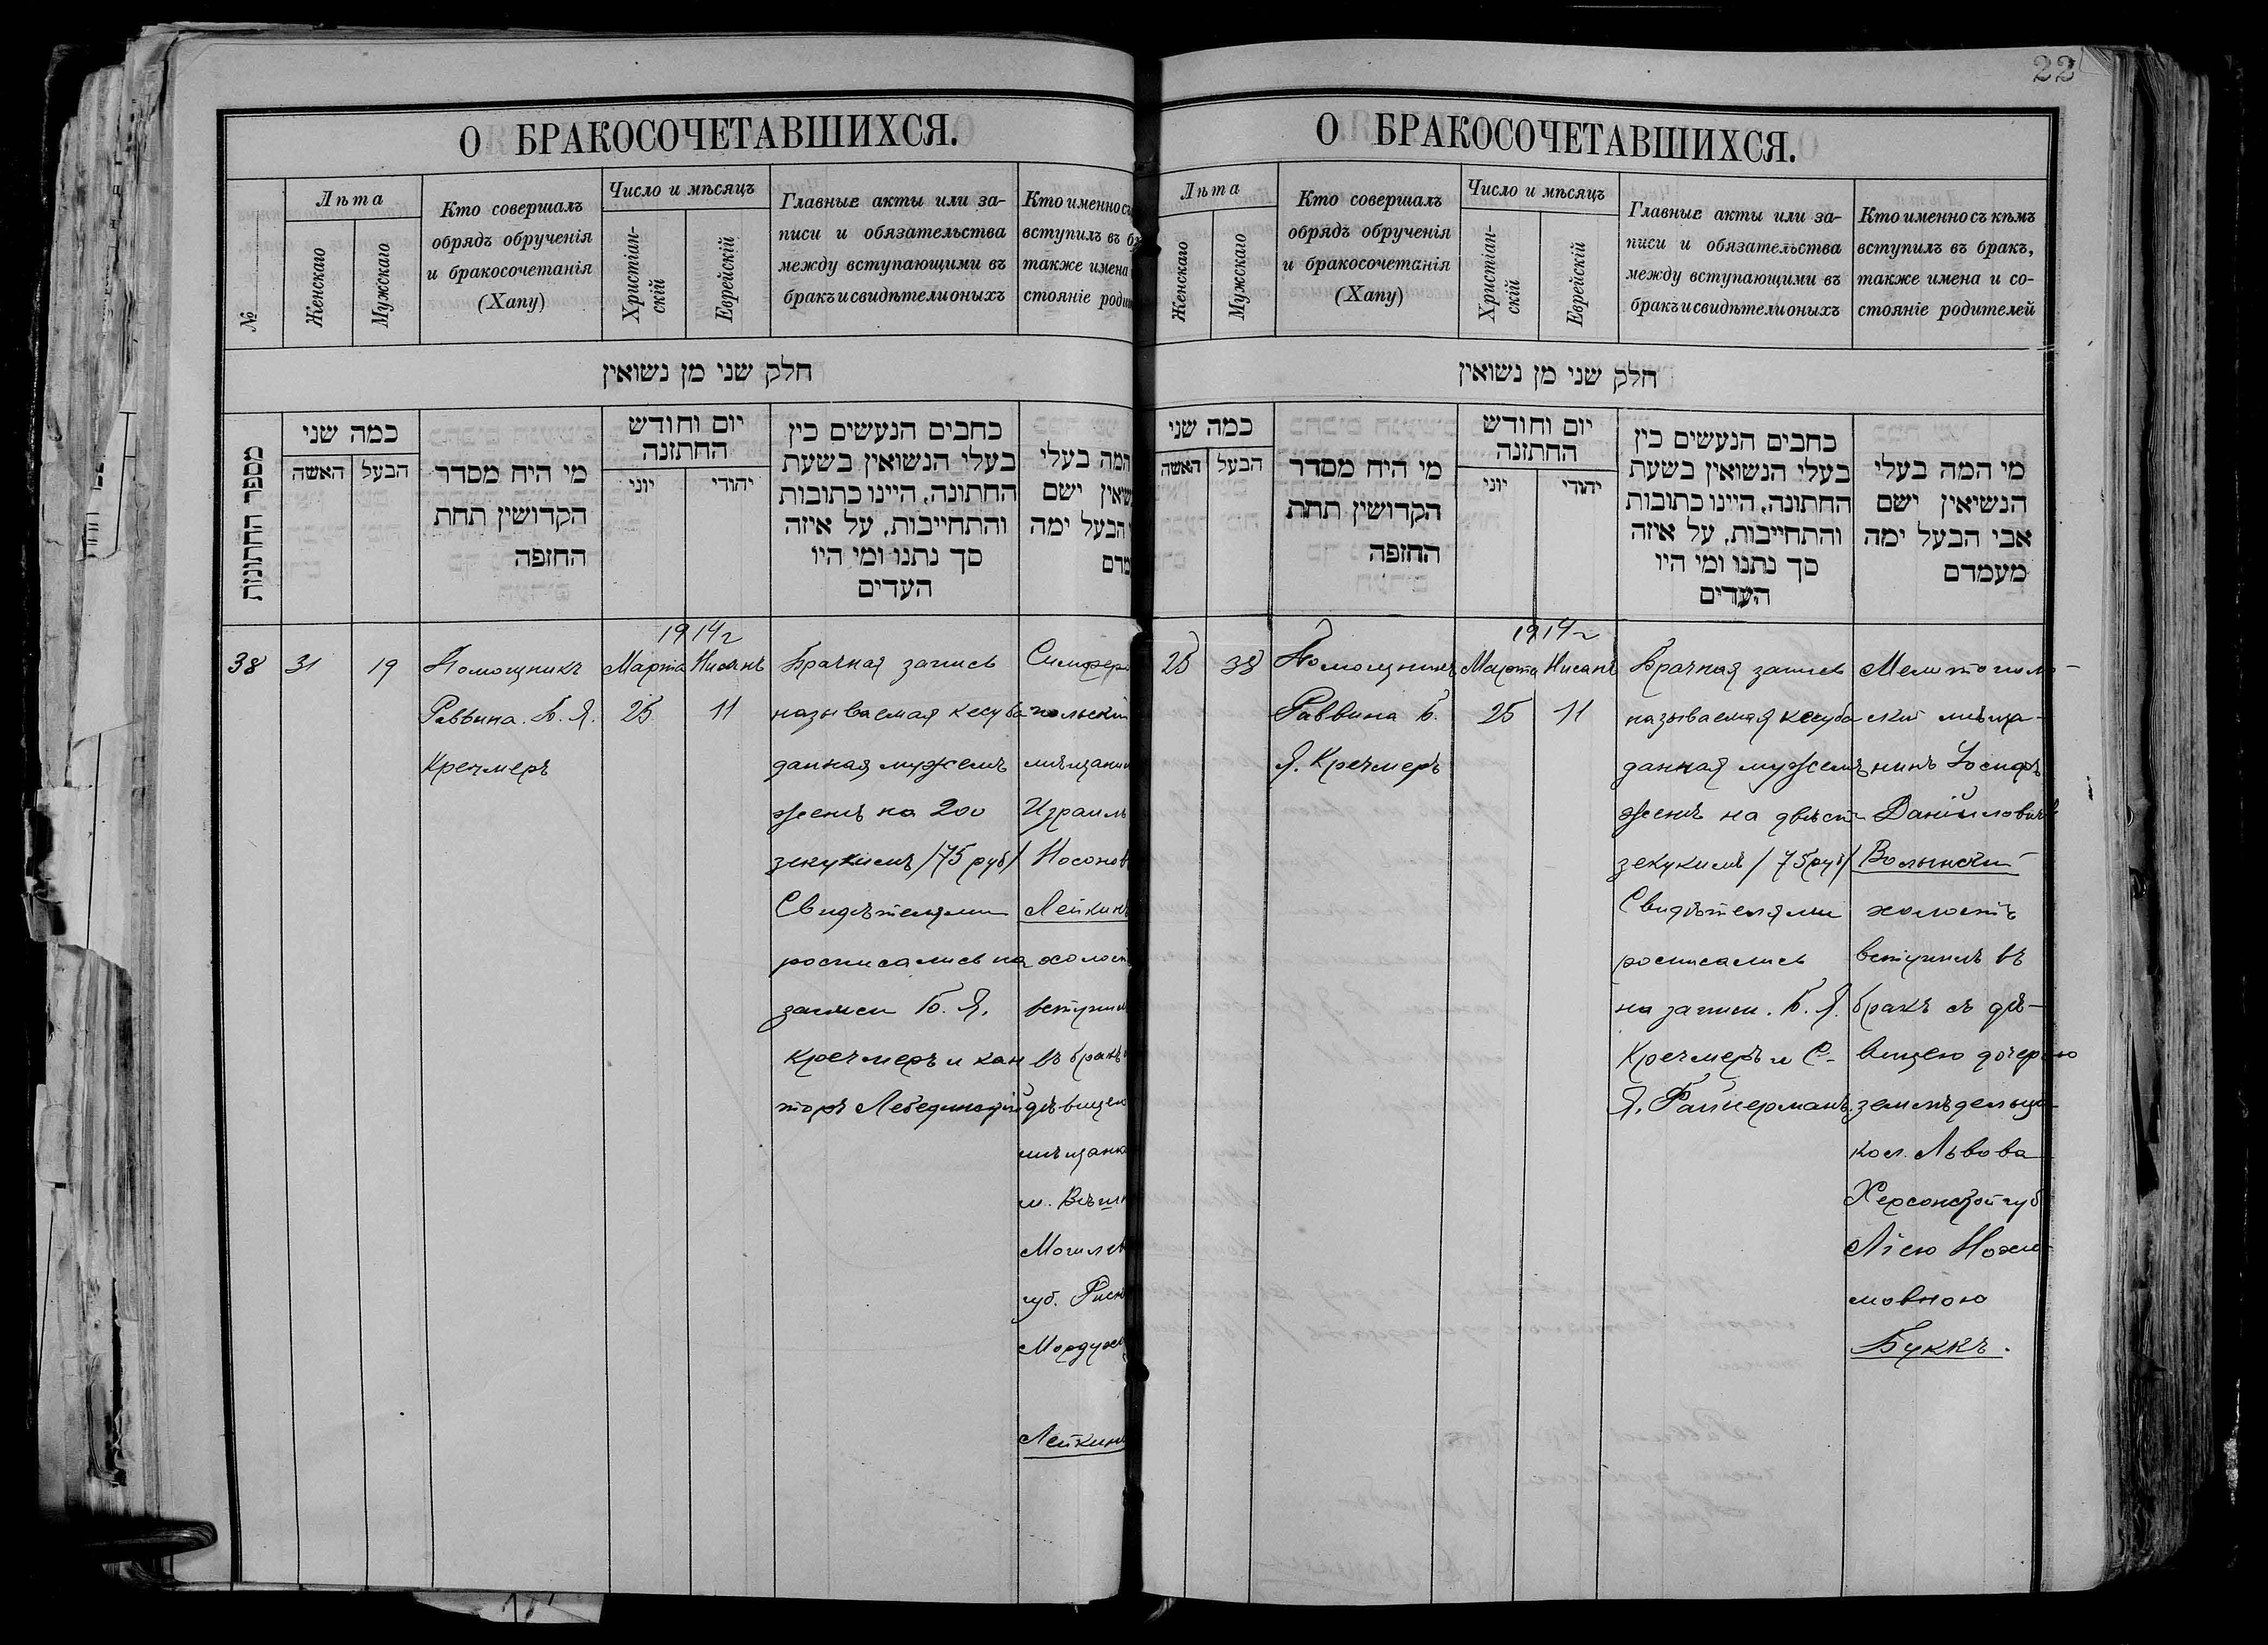 22
О БРАКОСОЧЕТАВШИХСЯ.
№
Лѣта
Женскаго
Мужскаго
Кто совершалъ
обрядъ обрученія
и бракосочетанія
(Хапу)
Число и мѣсяцъ
Христіан-
скій
Еврейскій
Главные акты или за-
писи и обязательства
между вступающими въ
бракъ и свидѣтели оныхъ
Кто именно съ
вступилъ въ бр
также имена
стояніе роди
חלק שני מן נשואין
מספר החתונות
כמה שני
האשה
הבעל
מי היח מסדר
הקדושין תחת
החזפה
יום וחודש
החתזנה
יוני
יהודי
כחבים הנעשים כין
בעלי הנשואין בשעת
החתונה, היינו כתובות
והתחייבות, על איזה
סך נתנו ומי היו
העדים
המה בעלי
שיאין ישם
הבעל ימה
מדם
38
31
19
Помощникъ
Раввина. Б. Я.
Кречмеръ
1914 г
Марта Нисанъ
25 11
Брачная запись
называемая кесуба
данная мужемъ
женѣ на 200
зекукимъ /75 руб/
Свидѣтелями
росписались на
записи Б. Я.
Кречмеръ и кан
торъ Лебединскій
Симферо
польскій
мѣщанин
Израиль
Носонов
Лейкинъ
холост
вступил
въ бракъ
дѣвицею
мѣщанк
м.
Могилев
губ.
Мордухо
Лейкин
О БРАКОСОЧЕТАВШИХСЯ.
Лѣта
Женскаго
Мужскаго
Кто совершалъ
обрядъ обрученія
и бракосочетанія
(Хапу)
Число и мѣсяцъ
Христіан-
скій
Еврейскій
Главные акты или за-
писи и обязательства
между вступающими въ
бракъ и свидѣтели оныхъ
Кто именно съ кѣмъ
вступилъ въ бракъ,
также имена и со-
стояніе родителей
חלק שני מן נשואין
כמה שני
האשה
הבעל
מי היח מסדר
הקדושין תחת
החזפה
יום וחודש
החתזנה
יוני
יהודי
כחבים הנעשים כין
בעלי הנשואין בשעת
החתונה, היינו כתובות
והתחייבות, על איזה
סך נתנו ומי היו
העדים
מי המה בעלי
הנשיאין ישם
אבי הבעל ימה
מעמדם
25
38
Помощникъ
Раввина Б.
Я. Кречмеръ
1914 г
Марта Нисанъ
25 11
Брачная запись
называемая кесуба
данная мужемъ
женѣ на двѣсти
зекукимъ /75 руб/
Свидѣтелями
росписались
на записи. Б. Я.
Кречмеръ и С.
Я. Файнерманъ.
Мелитополь-
скій мѣща-
нинъ Іосифъ
Даніиловичъ
Волынскій
холостъ
вступилъ въ
бракъ съ дѣ-
вицею дочерью
земледѣльца
кол. Львова
Херсонской губ
Ліею
мовною
Буккъ.